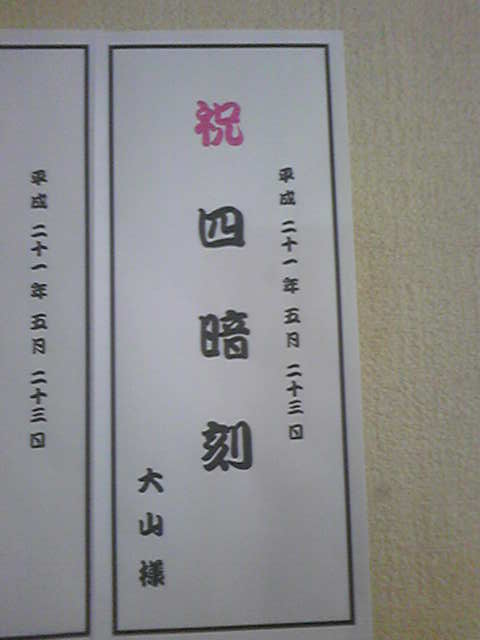 平成二十一年五月二十三日
祝四暗刻
大山様
平成二十一年五月二十三日